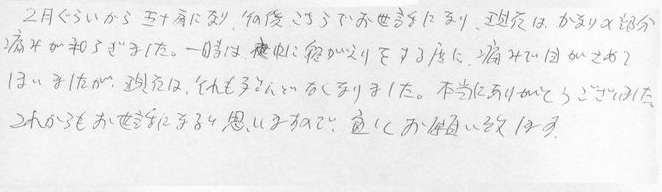 2月ぐらいから五十肩になり、何度こちらでお世話になり、現在は、かなりの部分
痛みが和らぎました。一時は夜中に寝がえりをする度に、痛みで目がさめて
いましたが、現在は、それもほとんどなくなりました。本当にありがとうございました。
これからもお世話になると思いますので、宜しくお願い致します。